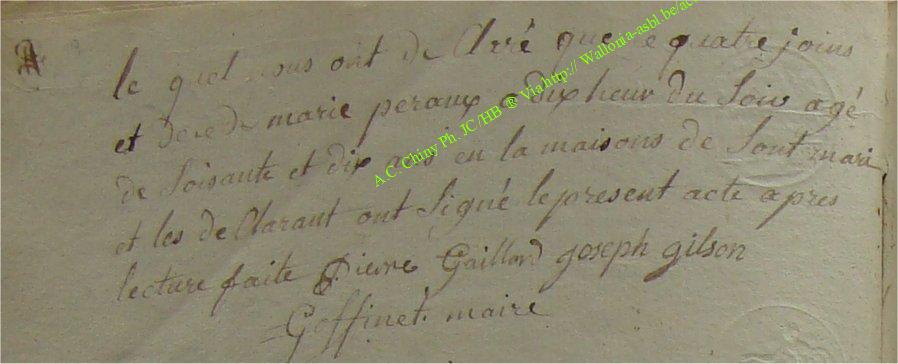 le quel nous ont de Clarré que le quatre joins
et decede marie peraux a dix heur du Soir agé
de Soisante et dix ans en la maisons de Sont mari
et les de Clarant ont Signé le present acte apres
lecture faite Pierre Gaillard joseph gilson
Goffinet maire
A.C. Chiny Ph. JC/HB ® Via http:// Wallonia-asbl.be/ac